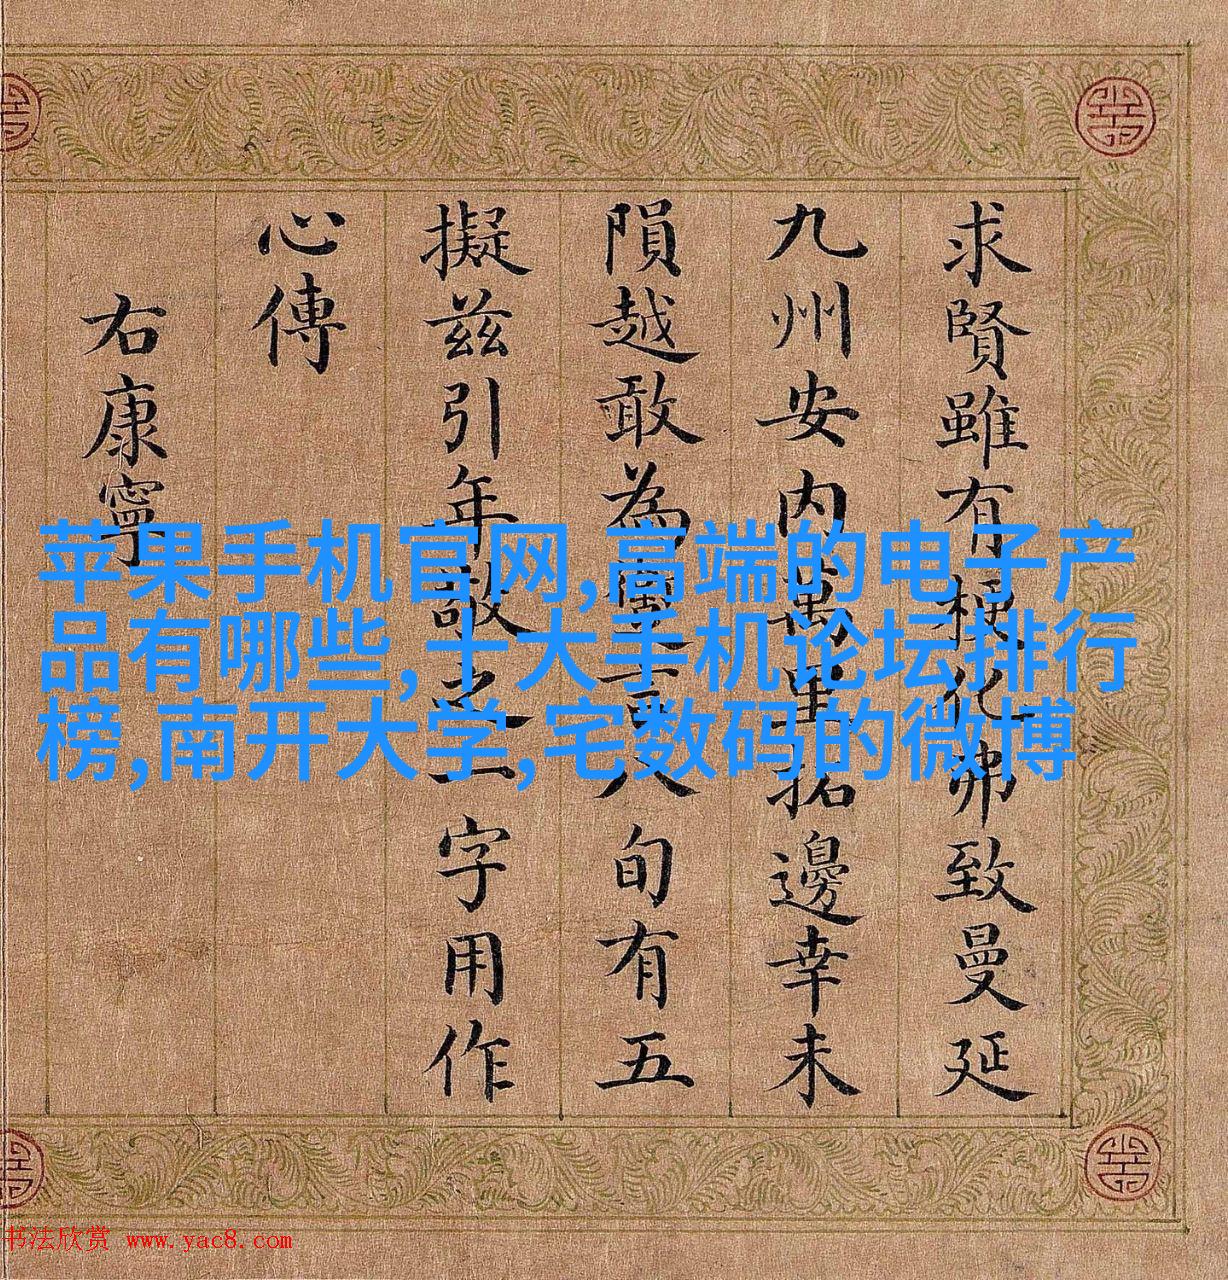 求賢雖有梗化弗致曼延
九州安内萬里拓邊幸未
隕越敢為八旬有五
擬兹引年敬之一字用作
心傳
右康寧
苹果手机官网,高端的电子产
品有哪些,十大手机论坛排行
榜,南开大学,宅数码的微博
书法欣赏 www.yac8.com